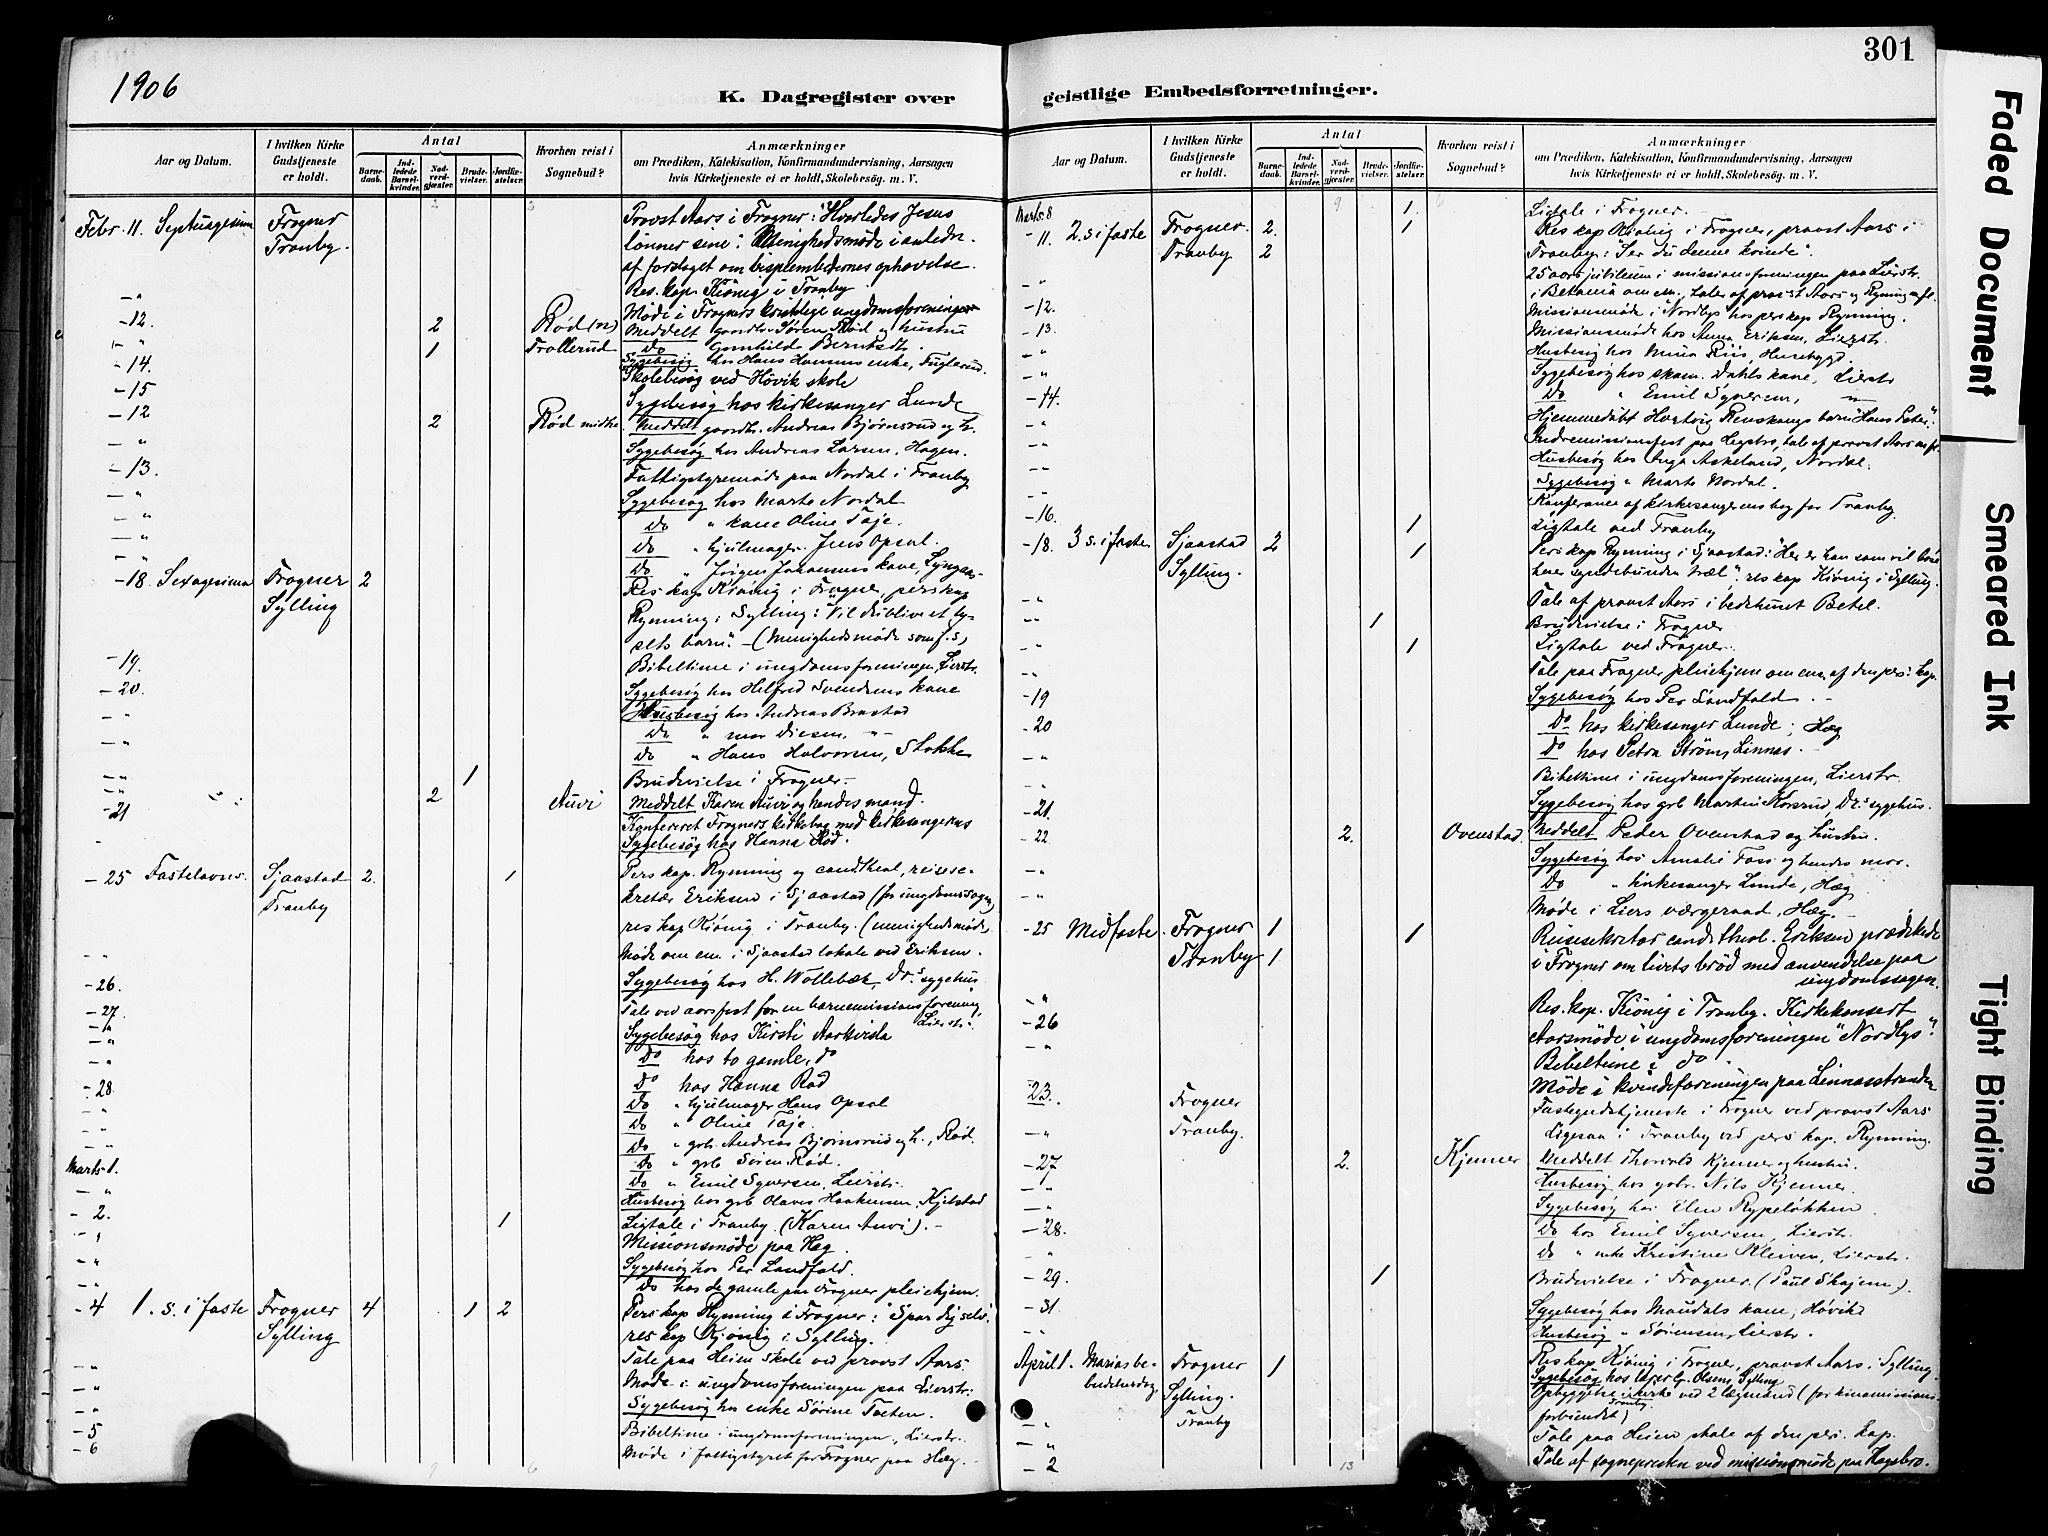 1906
K. Dagregister over
Aar og Datum.
I hvilken Kirke Gudstjeneste er holdt.
Antal
Barnedaab.
Indledede Barselkvinder.
Nadverdgjæster.
Brudevielser.
Jordfæstelser.
Hvorhen reist i Sognebud?
Anmærkninger
om Prædiken, Katekisation, Konfirmandundervisning, Aarsagen
hvis Kirketjeneste ei er holdt, Skolebesøg. m. V.
Febr. 11. Septuagesima Frogner Provst Aars i Frogner: "Hvorledes Jesus
Tranby. lønner sine". Menighedsmøde i anledn.
af forslaget om bispembedernes ophævelse.
Res. kap. Kiønig i Tranby
-"- Møde i Frogners kristelige ungdomsforening
-12. 2 Rød (n) Meddelt gaardbr. Søren Rød og hustru
-"- 1 Trollerud Do Gunhilde Berntsdtr.
-14. Sygebesøg hos Hans Hansens enke, Fuglerud.
-15 Skolebesøg ved Høvik skole
Sygebesøg hos kirkesanger Lunde
-12 2 Rød midtre Meddelt gaardbr. Andreas Bjørnsrud og h.
-"- Sygebesøg hos Andreas Larsen, Hagen.
-13. Fattigstyremøde paa Nordal i Tranby
-"- Sygebesøg hos Marte Nordal
-"- Do " kane Oline Taje.
-"- Do " hjulmager Jens Opsal.
-"- Do " Jørgen Johansens kane, Lyngaas
-18. Sexagesima Frogner 2 Res kap Kiønig i Frogner, perskap
Sylling Rynning i Sylling: "Vil du blive et ly-
sets barn". - (Menighedsmøde som f. s.)
-19. Bibeltime i ungdomsforeningen, Lierstr.
-20. Sygebesøg hos Helfred Svendsens kane
-"- Husbesøg hos Andreas Brastad
-"- Do
-"- Do " Hans Halvorsen, Stokke
-"- 1 Brudevielse i Frogner.-
-"- 2 Auvi Meddelt Karen Auvi og hendes mand.
-21 Konfereret Frogners kirkebog med kirkesangerens
Sygebesøg hos Hanna Rød.
-25 Fastelavns. Sjaastad 2. 1 Pers kap. Rynning og cand theol, reisese-
Tranby kretær Eriksen i Sjaastad (for ungdomssagen)
res kap Kiønig i Tranby. (menighedsmøde
-"- Møde om em. i Sjaastad lokale ved Eriksen.
-26. Sygebesøg hos H. Wollebæk, Dr.s sygehus
-27. Tale ved aarsfest for en barnemissionsforening
-"- Sygebesøg hos Kirsti Aarkvisla Lierstr.
-"- Do hos to gamle, do
-28. Do hos Hanna Rød
-"- Do " hjulmager Hans Opsal
-"- Do " Oline Taje.
-"- Do " grb. Andreas Bjørnsrud og h., Rød.
Marts 1. Do " grb Søren Rød.
-"- Do " Emil Syversen, Lierstr.
Husbesøg hos grb Olaves Haakensen, Kjelstad
-2. 1 Ligtale i Tranby (Karen Auvi).-
-"- Missionsmøde paa Hæg.
-"- Sygebesøg hos Per Landfald.
-"- Do hos de gamle paa Frogner pleiehjem.
-4 1. s. i faste Frogner 4 1 2 Pers kap Rynning i Frogner: "Spar dig selv",
Sylling res kap Kjønig i Sylling.
-"- Tale paa Heien skole ved provst Aars.
-"- Møde i ungdomsforeningen paa Lierstr.
-"- Sygebesøg hos enke Sørine Toften.
-5 Bibeltime i ungdomsforeningen, Lierstr.
-6 Møde i fattigstyret for Frogner paa Hæg.
301
geistlige Embedsforretninger.
Aar og Datum.
I hvilken Kirke Gudstjeneste er holdt.
Antal
Barnedaab.
Indledede Barselkvinder.
Nadverdgjæster.
Brudevielser.
Jordfæstelser.
Hvorhen reist i Sognebud?
Anmærkninger
om Prædiken, Katekisation, Konfirmandundervisning, Aarsagen
hvis Kirketjeneste ei er holdt, Skolebesøg. m. V.
Marts 8 1 Ligtale i Frogner.
-11. 2. s. i faste Frogner 2. 1 Res kap Kiønig i Frogner, provst Aars i
Tranby 2 Tranby: "Ser du denne kvinde".
-"- 25 aars jubileum i missionsforeningen paa Lierstr.
i Betania om em., taler af provst Aars og Rynning m fl.
-12. Missionsmøde i Nordlys hos perskap Rynning.
-13. Missionsmøde hos Anna Eriksen, Lierstr.
-"- Husbesøg hos Mina Riis, Hurebygd.
-"- Sygebesøg hos Dahls kane, Lierstr
-14. Do " Emil Syversen, "
-"- Hjemmedøbt Hartvig Renskaugs barn "Hans Peter".
-"- Indremissionsfest paa Legstro, tale af provst Aars m fl.
-"- Husbesøg hos Inga Askeland, Nordal.
-"- Sygebesøg " Marte Nordal.
-16. Konferance af kirkesangerens bog for Tranby.
1 Ligtale ved Tranby
-18. 3 s. i faste Sjaastad 2 1 Pers kap Rynning i Sjaastad: "Her er han som vil løse
Sylling. hver syndebunden træl". res kap Kiønig i Sylling.
-"- Tale af provst Aars i bedehuset Betel.
-"- 1 Brudevielse i Frogner
-"- 1 Ligtale ved Frogner.
-"- Tale paa Frogner pleiehjem om em. af den pers. kap.
-19 Sygebesøg hos Per Landfald.
-20 Do hos kirkesanger Lunde, Hæg
-"- Do hos Petra Strøm, Linnes.
-"- Bibeltime i ungdomsforeningen, Lierstr.
-21. Sygebesøg hos grb Martin Korsrud Dr.s sygehus.
-22 2. Ovenstad. Meddelt Peder Ovenstad og hustru.
-"- Sygebesøg hos Amalie Foss og hendes mor.
-"- Do " kirkesanger Lunde, Hæg
Møde i Liers værgeraad, Hæg.
-25 Midfaste Frogner 1 1 Reisesekretær cand. theol. Eriksen prædikede
Tranby 1 i Frogner om livets brød med anvendelse paa
ungdomssagen.
-"- Res. kop. Kiønig i Tranby. Kirkekonsert
-26 Aarsmøde i ungdomsforeningen "Nordlys".
-"- Bibeltime i do
Møde i kvindeforeningen paa Linnesstranden
-23. Frogner Fastegudstjeneste i Frogner ved provst Aars
-"- Tranby. Ligesaa i Tranby ved pers kap. Rynning.
-27 2. Kjenner Meddelt Thorvald Kjenner og hustru.
-"- Husbesøg hos gbr. Nils Kjenner.
-"- Sygebesøg hos Elen Rypeløkken
-28. Do hos Emil Syversen, Lierstr.
-"- Do " enke Kristine Kleiven, Lierstr.
-29. 1 Brudevielse i Frogner (Paul Skajem).
-31. Sygebesøg hos Maudals kane, Høvik
-"- Husbesøg " Sørensen, Lierstr.
April 1. Mariasbe- Frogner 1 Res kap Kiønig i Frogner, provst Aars i Sylling.
budelsesdag Sylling. Sygebesøg hos Olsens, Sylling
-"- Tranby Opbyggelse i Tranby kirke ved 2 lægmænd (for kinamissions-
forbundet)
-"- Tale paa Heien skole af den pers. kap.
-2 Tale af sognepresten ved missionsmøde paa Hagebro.
9 6 13
Faded Document
Smeared Ink
Tight Binding